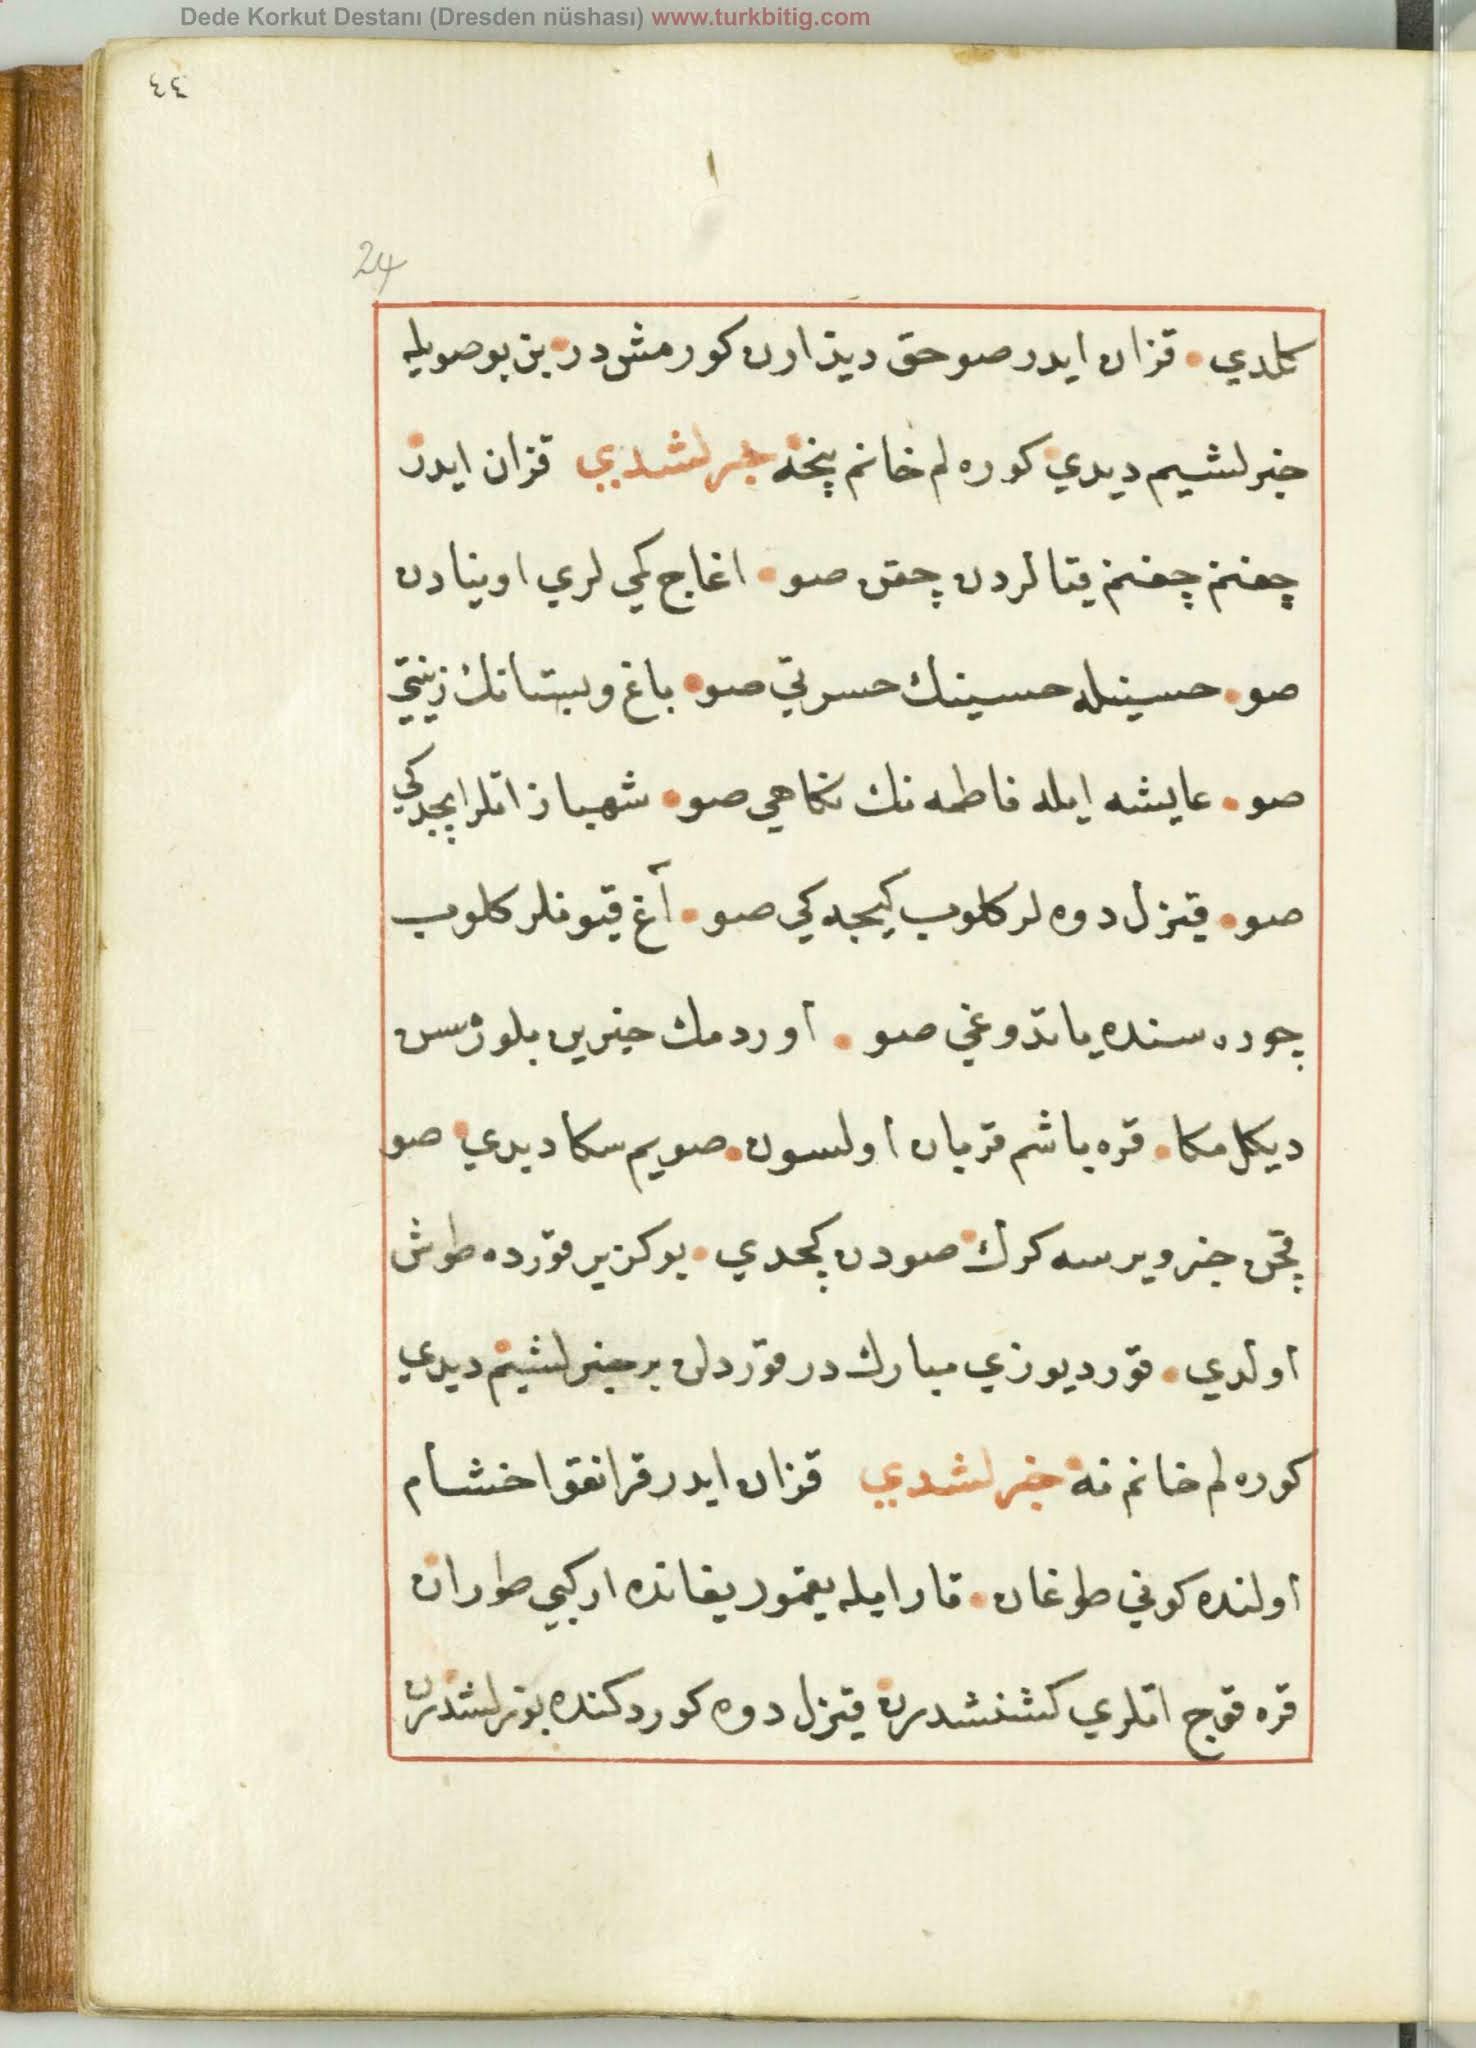 Dede Korkut Destanı (Dresden nüshası) www.turkbitig.com
٤٤
24
كلدي • قزان ايدر صو حق ديذارن كورمش در • بن بو صويله
خبرلشيم ديدي كوره لم خانم نيخه خبرلشدي قزان ايدر
چغنم چغنم قيالردن چقن صو • اغاج كمي لري اوينادن
صو • حسنيله حسينك حسرتي صو • باغ و بستانك زينتي
صو • عايشه ايله فاطمه نك نكاهي صو • شهباز اتلر ايچدكي
صو • قيزل دوه لر كلوب كيچدكي صو • آغ قيونلر كلوب
چوره سنده ياتدوغي صو • اوردمك خبرين بلورسن
ديكل مكا • قره باشم قربان اولسون • صويم سكا ديدي صو
قچن خبر ويرسه كرك صودن كچدي • بو كز بر قورده طوش
اولدي • قورد يوزي مبارك در قوردلن بر خبرلشيم ديدي
كوره لم خانم نه خبرلشدي قزان ايدر قرانقو اخشام
اولنده كوني طوغان • قار ايله يغمور يغانده ار كبي طوران
قره قوچ اتلري كشنشدرن قيزل دوه كوردكنده بوزلشدرن